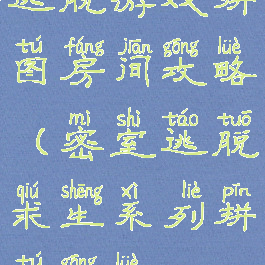 逃脱游戏拼
tú fáng jiān gōng lüè
图房间攻略
mì shì táo tuō
(密室逃脱
qiú shēng xì liè pīn
求生系列拼
tú gōng lüè